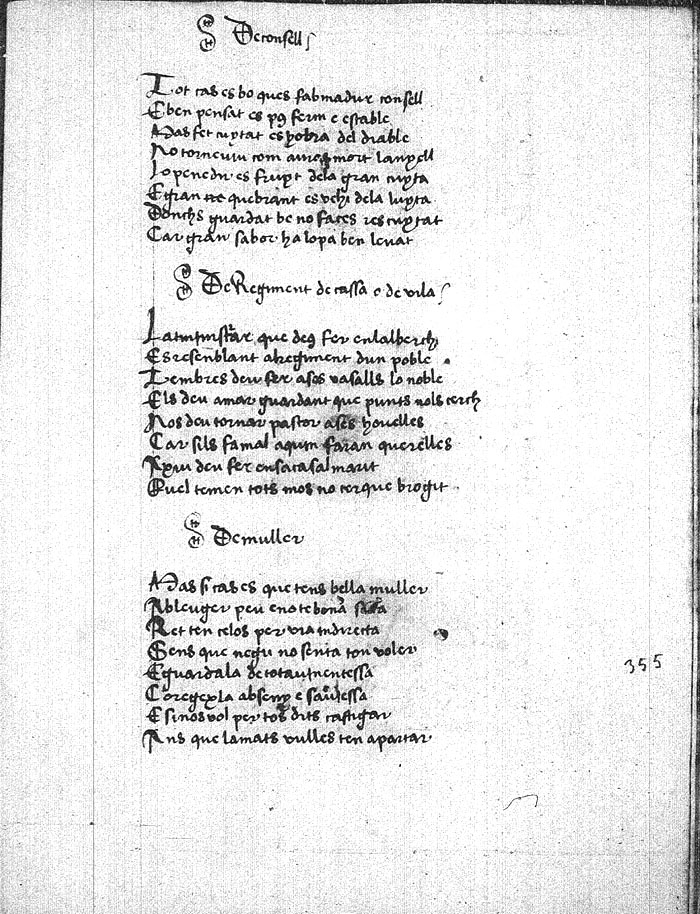 De consell
Tot cas es bo ques fab madur consell
E ben pensat es pus ferm e estable
Mas fet cuytat es hobra del diable
No torneuiu com aures mort lanyell
Lo penedir es fruyt dela gran cuyta
E gran quebrant es vehi dela luyta
Donchs guardat be no faces res cuytat
Car gran sabor ha lo pa ben leuat
De Regiment de cassa e de vila
que deus fer enlalberch
Es resenblant al regiment dun poble
Tembres deu fer a ses vasalls lo noble
Els deu amar guardant que punts nols cerch
Nos deu tornar pastor a ses houelles
Car sils fa mal aquin faran querelles
Axiu deu fer en sa casa l marit
Quel temen tots mos no cerque brogit
De muller
Mas si cas es que tens bella muller
Ab leuger peu e no te bona
Ret ten celos per via indirecta
Sens que negu no senta ton voler
E guarda la de tota
abseny e
E si nos vol per tos dits castigar
Ans que la mats vulles ten apartar
355